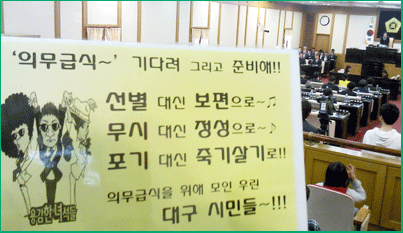 ‘의무급식~’ 기다려 그리고 준비해!!
선별 대신 보편으로~♫
무시 대신 정성으로~♪
포기 대신 죽기살기로!!
의무급식을 위해 모인 우린
대구 시민들~!!!
용감한녀석들